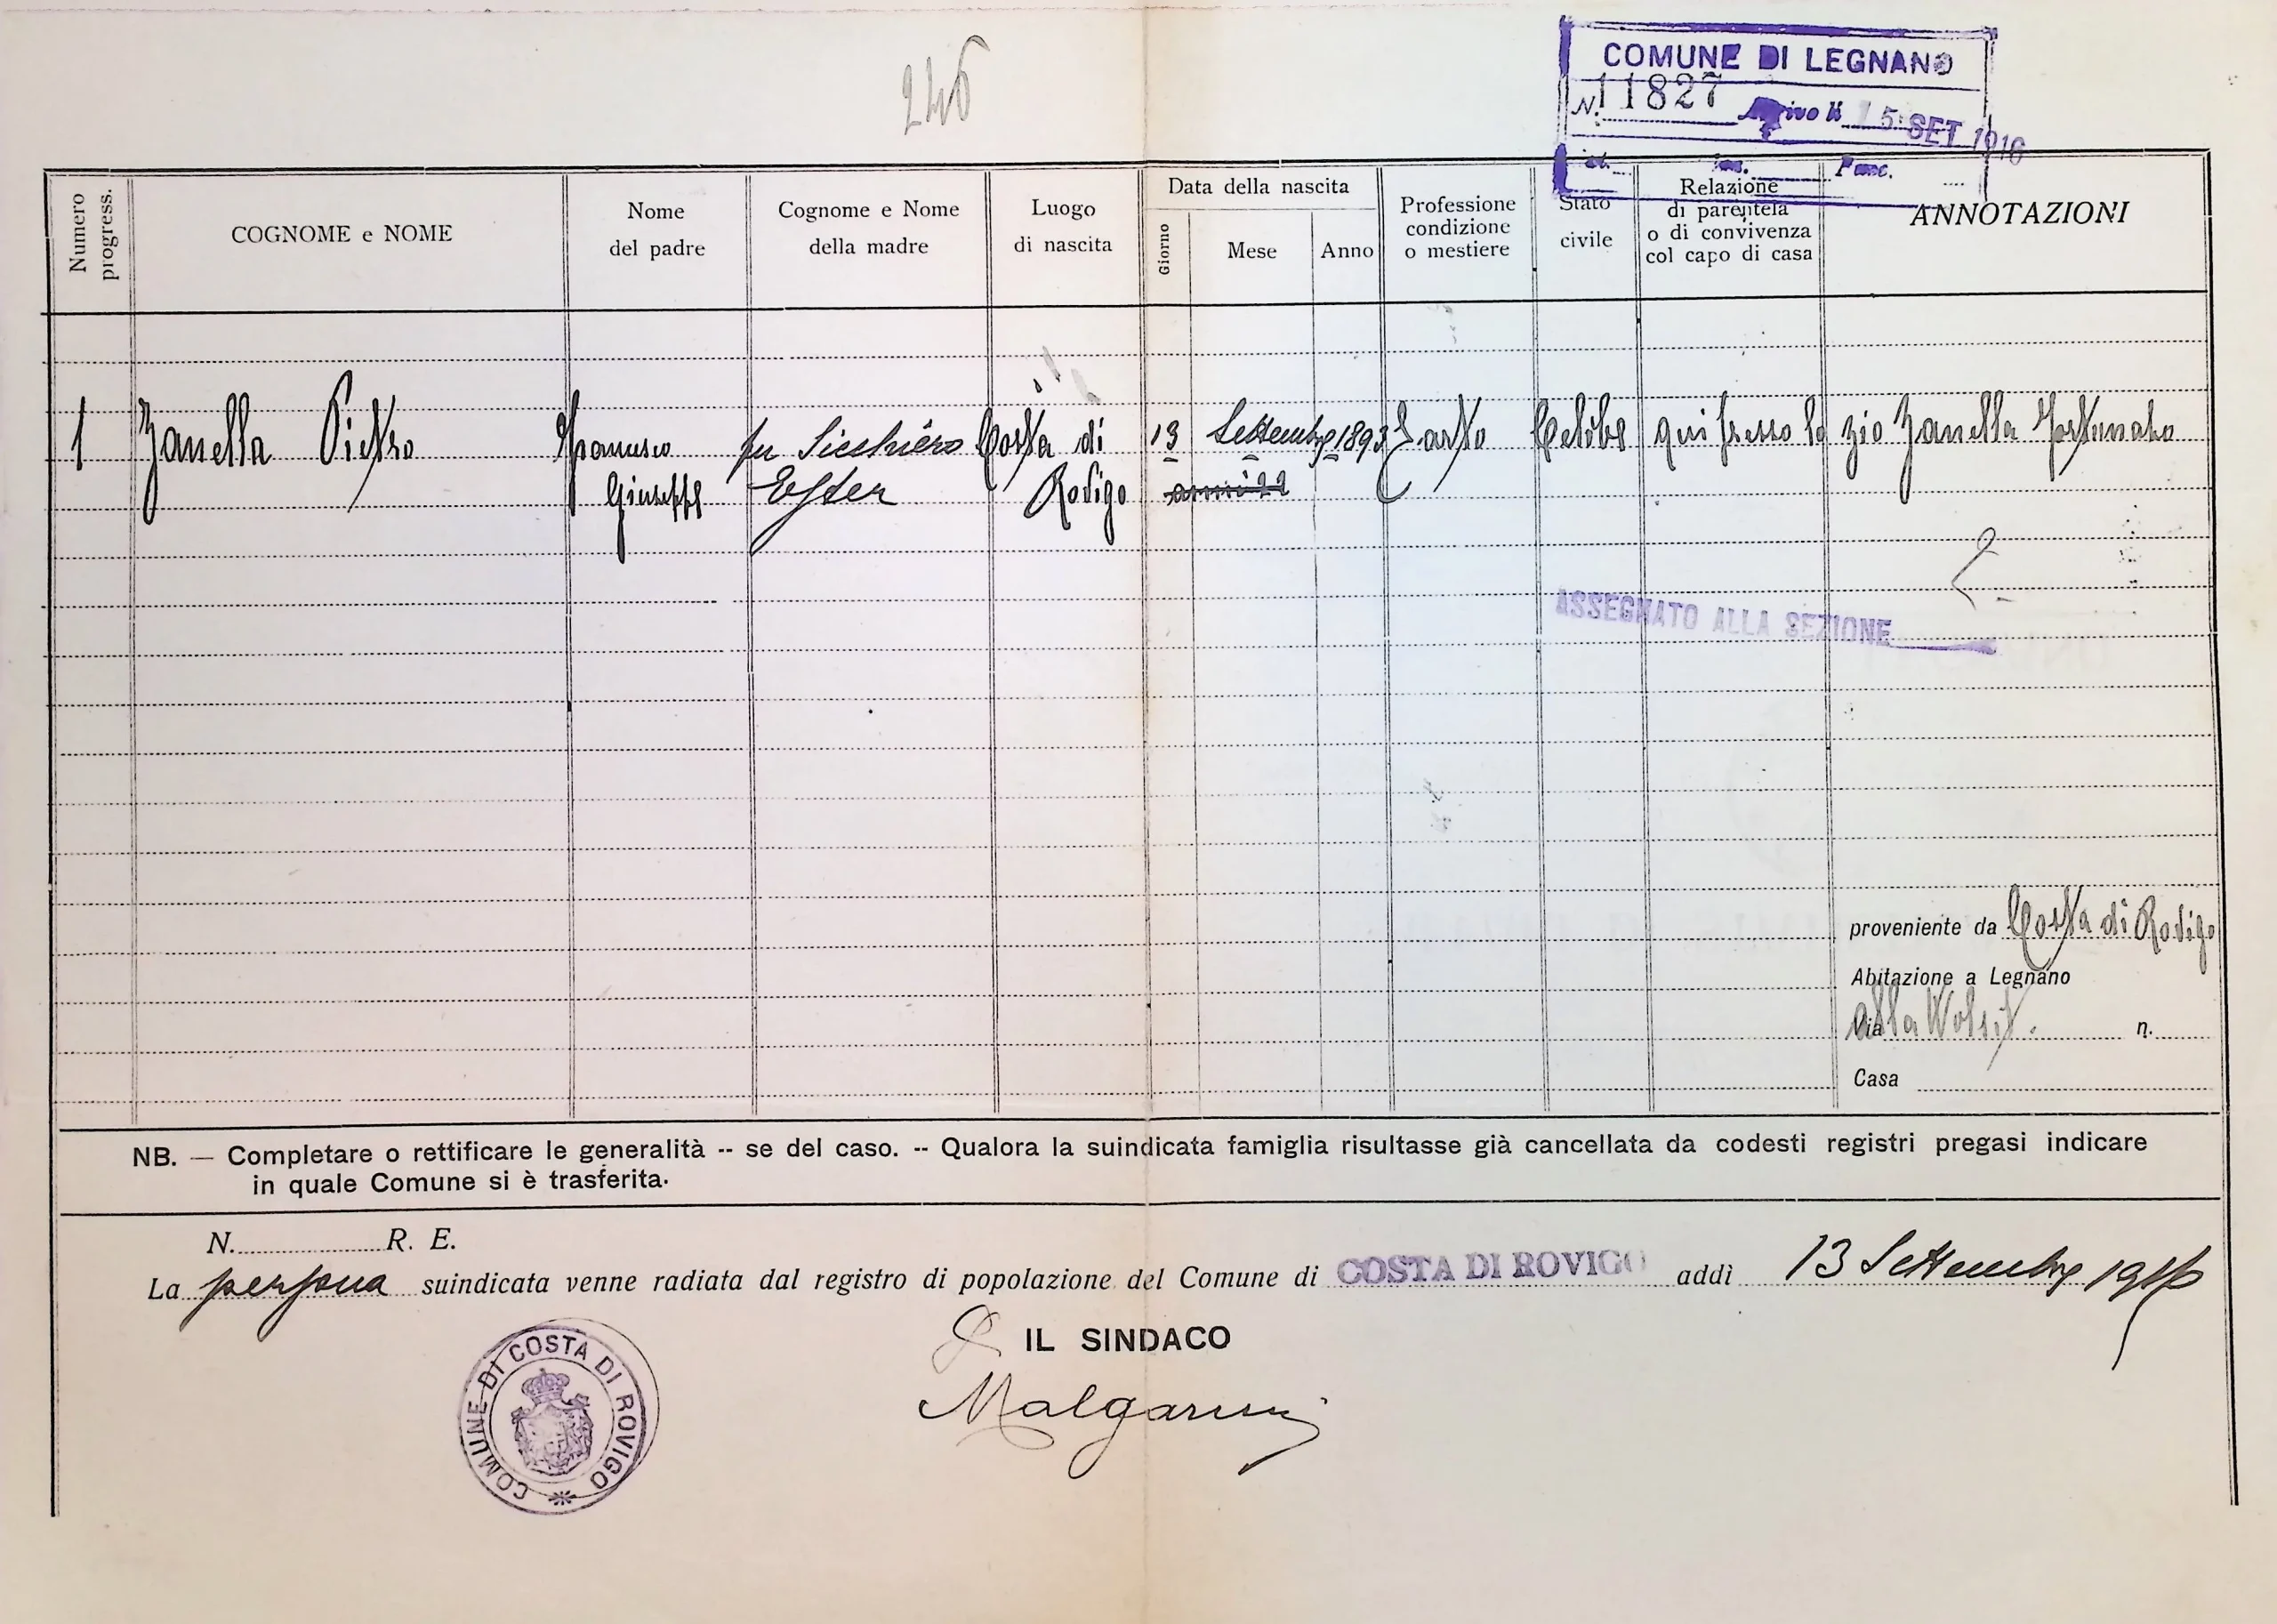 246
COMUNE DI LEGNANO
N. 11827 Arrivo li 15 SET 1916
Cat. Fasc.
Numero progress.
COGNOME e NOME
Nome
del padre
Cognome e Nome
della madre
Luogo
di nascita
Data della nascita
Giorno
Mese
Anno
Professione
condizione
o mestiere
Stato
civile
Relazione
di parentela
o di convivenza
col capo di casa
ANNOTAZIONI
1 Zanella Pietro Francesco fu Sicchiero Costa di 13 Settembre 1893 Sarto Celibe qui presso lo zio Zanella Fortunato
Giuseppe Ester Rovigo anni 22
ASSEGNATO ALLA SEZIONE
proveniente da Costa di Rovigo
Abitazione a Legnano
Via alla Wolsit. n.
Casa
NB. — Completare o rettificare le generalità -- se del caso. -- Qualora la suindicata famiglia risultasse già cancellata da codesti registri pregasi indicare
in quale Comune si è trasferita.
N. R. E.
La persona suindicata venne radiata dal registro di popolazione del Comune di COSTA DI ROVIGO addì 13 Settembre 1916
IL SINDACO
Malgarini
COMUNE DI COSTA DI ROVIGO